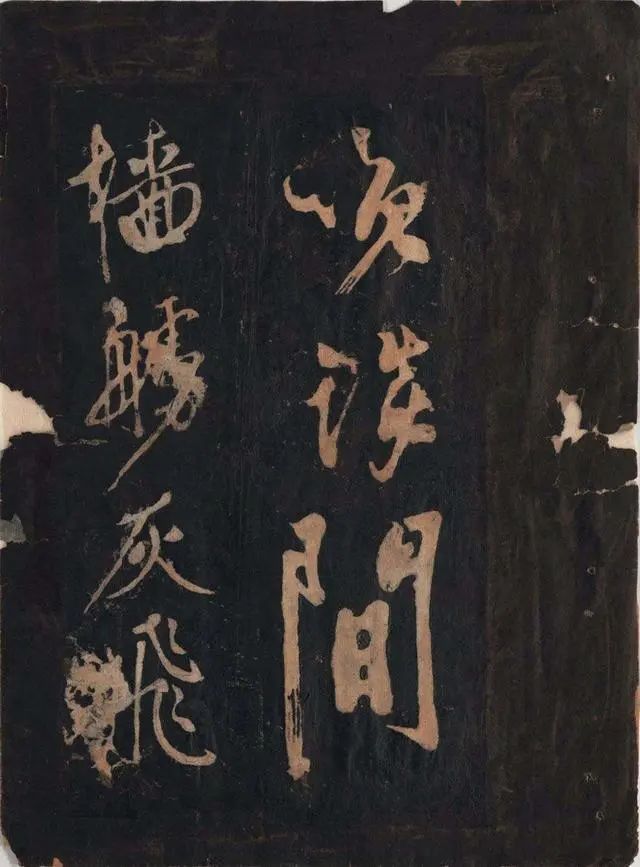 咲談間
檣艣灰飛